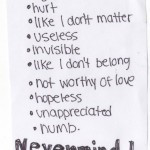 • hurt
• like I don't matter
• useless
• invisible
• like I don't belong
• not worthy of love
• hopeless
• unappreciated
• numb.
Nevermind!